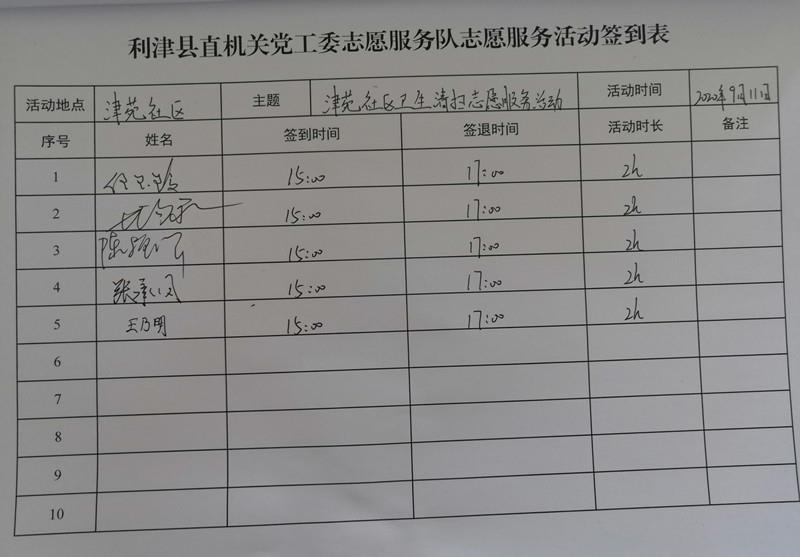 利津县直机关党工委志愿服务队志愿服务活动签到表
活动地点 津苑社区 主题 津苑社区卫生清扫志愿服务活动 活动时间 2020年9月11日
序号 姓名 签到时间 签退时间 活动时长 备注
1 15:00 17:00 2h
2 15:00 17:00 2h
3 15:00 17:00 2h
4 张 15:00 17:00 2h
5 王乃明 15:00 17:00 2h
6
7
8
9
10